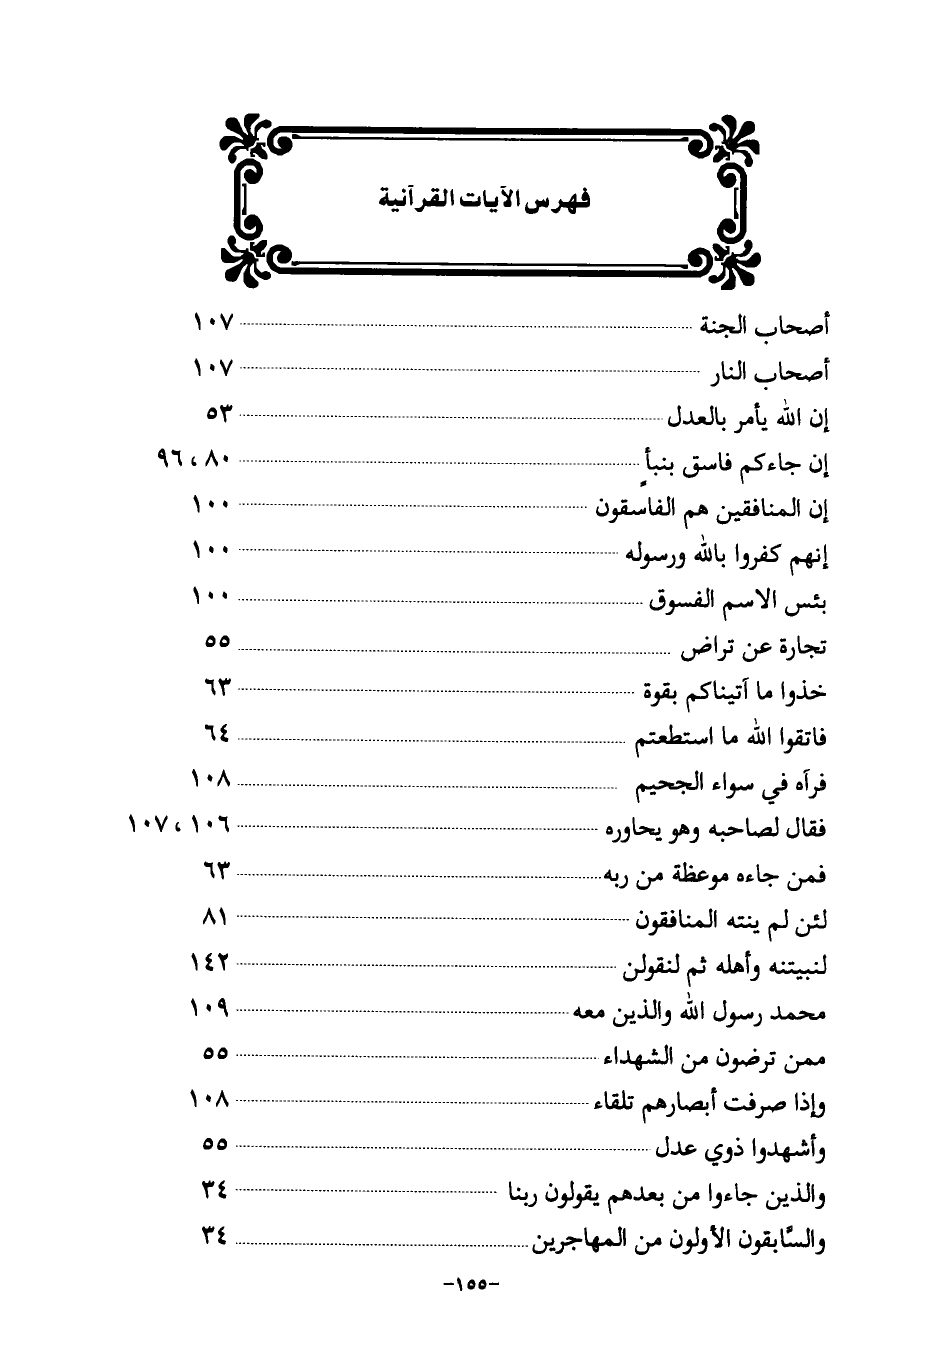 فهرس الآيات القرآنية
أصحاب الجنة ١٠٧
أصحاب النار ١٠٧
إن الله يأمر بالعدل ٥٣
إن جاءكم فاسق بنبأٍ ٨٠ ، ٩٦
إن المنافقين هم الفاسقون ١٠٠
إنهم كفروا بالله ورسوله ١٠٠
بئس الاسم الفسوق ١٠٠
تجارة عن تراض ٥٥
خذوا ما آتيناكم بقوة ٦٣
فاتقوا الله ما استطعتم ٦٤
فرآه في سواء الجحيم ١٠٨
فقال لصاحبه وهو يحاوره ١٠٦ ، ١٠٧
فمن جاءه موعظة من ربه ٦٣
لئن لم ينته المنافقون ٨١
لنبيتنه وأهله ثم لنقولن ١٤٢
محمد رسول الله والذين معه ١٠٩
ممن ترضون من الشهداء ٥٥
وإذا صرفت أبصارهم تلقاء ١٠٨
وأشهدوا ذوي عدل ٥٥
والذين جاءوا من بعدهم يقولون ربنا ٣٤
والسَّابقون الأولون من المهاجرين ٣٤
-١٥٥-